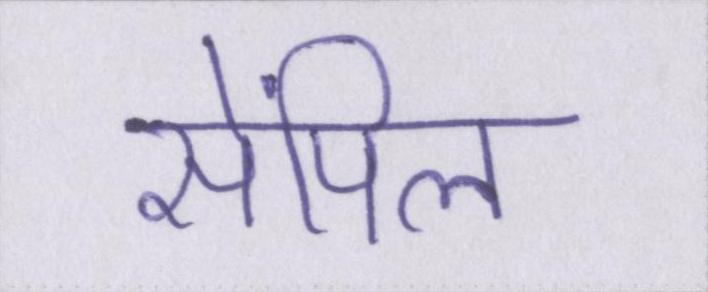 सेंपिल